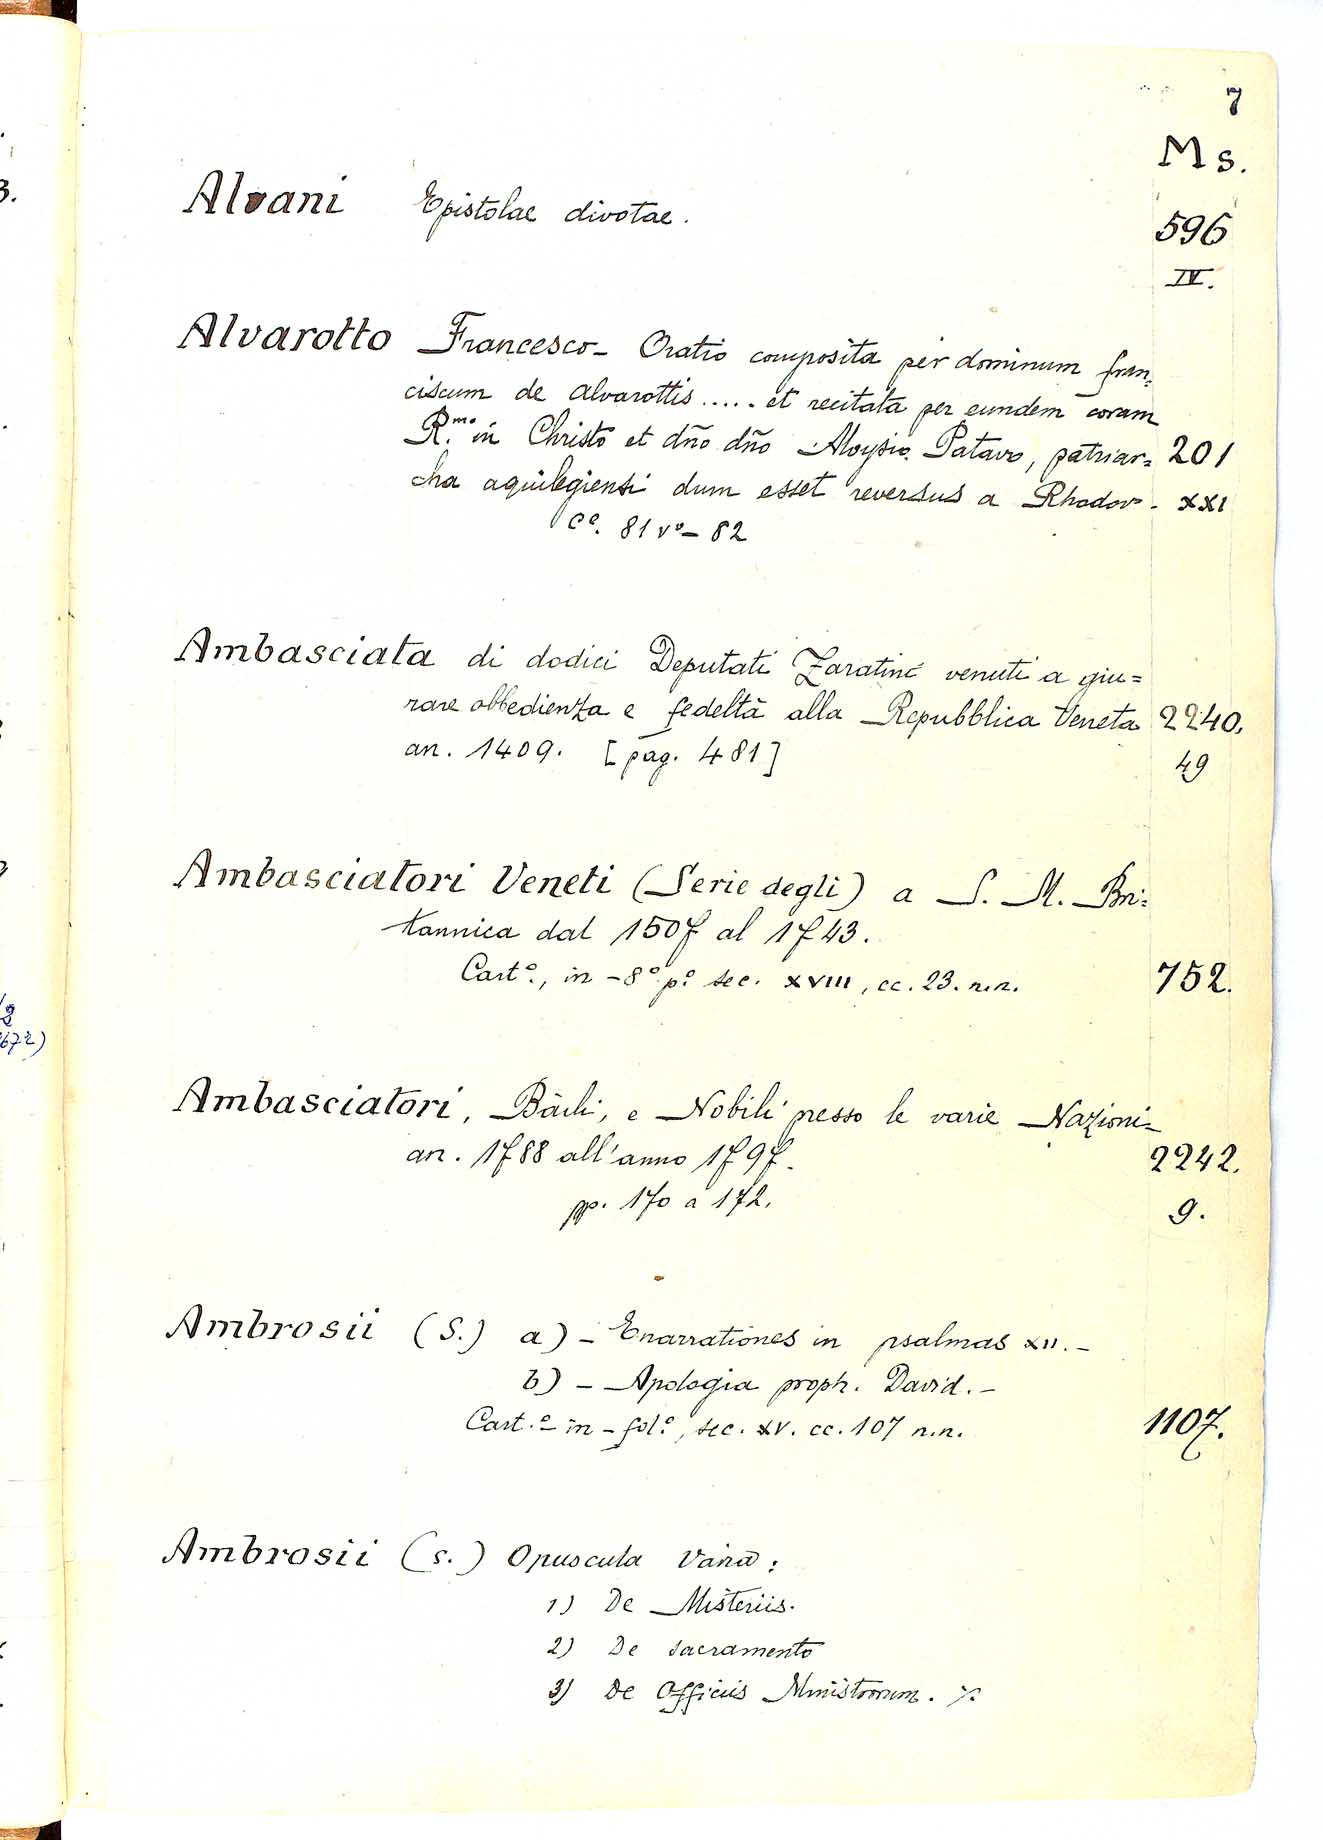 7
Ms.
Alvani Epistolae divotae.
596
IV.
Alvarotto Francesco - Oratio composita per dominum fran=
ciscum de Alvarottis ..... et recitata per eundem coram
R.mo in Christo et dño dño Aloysio Patavo, patriar= 201
cha aquilegiensi dum esset reversus a Rhodo. XXI
Ce. 81 vo - 82
Ambasciata di dodici Deputati Zaratini venuti a giu=
rare obbedienza e fedeltà alla Repubblica Veneta 2240.
an. 1409. [pag. 481] 49
Ambasciatori Veneti (Serie degli) a S. M. Bri=
tannica dal 1507 al 1743.
Cart°., in - 8° p° sec. XVIII, cc. 23. n.n. 752.
Ambasciatori, Baili, e Nobili presso le varie Nazioni -
an. 1788 all'anno 1797. 2242.
pp. 170 a 172. 9.
Ambrosii (S.) a) - Enarrationes in psalmas XII. -
b) - Apologia proph. David. -
Cart.° in - fol°, sec. XV. cc. 107 n.n. 1107.
Ambrosii (s.) Opuscula varia:
1) De Misteriis.
2) De sacramento
3) De Officiis Ministrorum. ./.